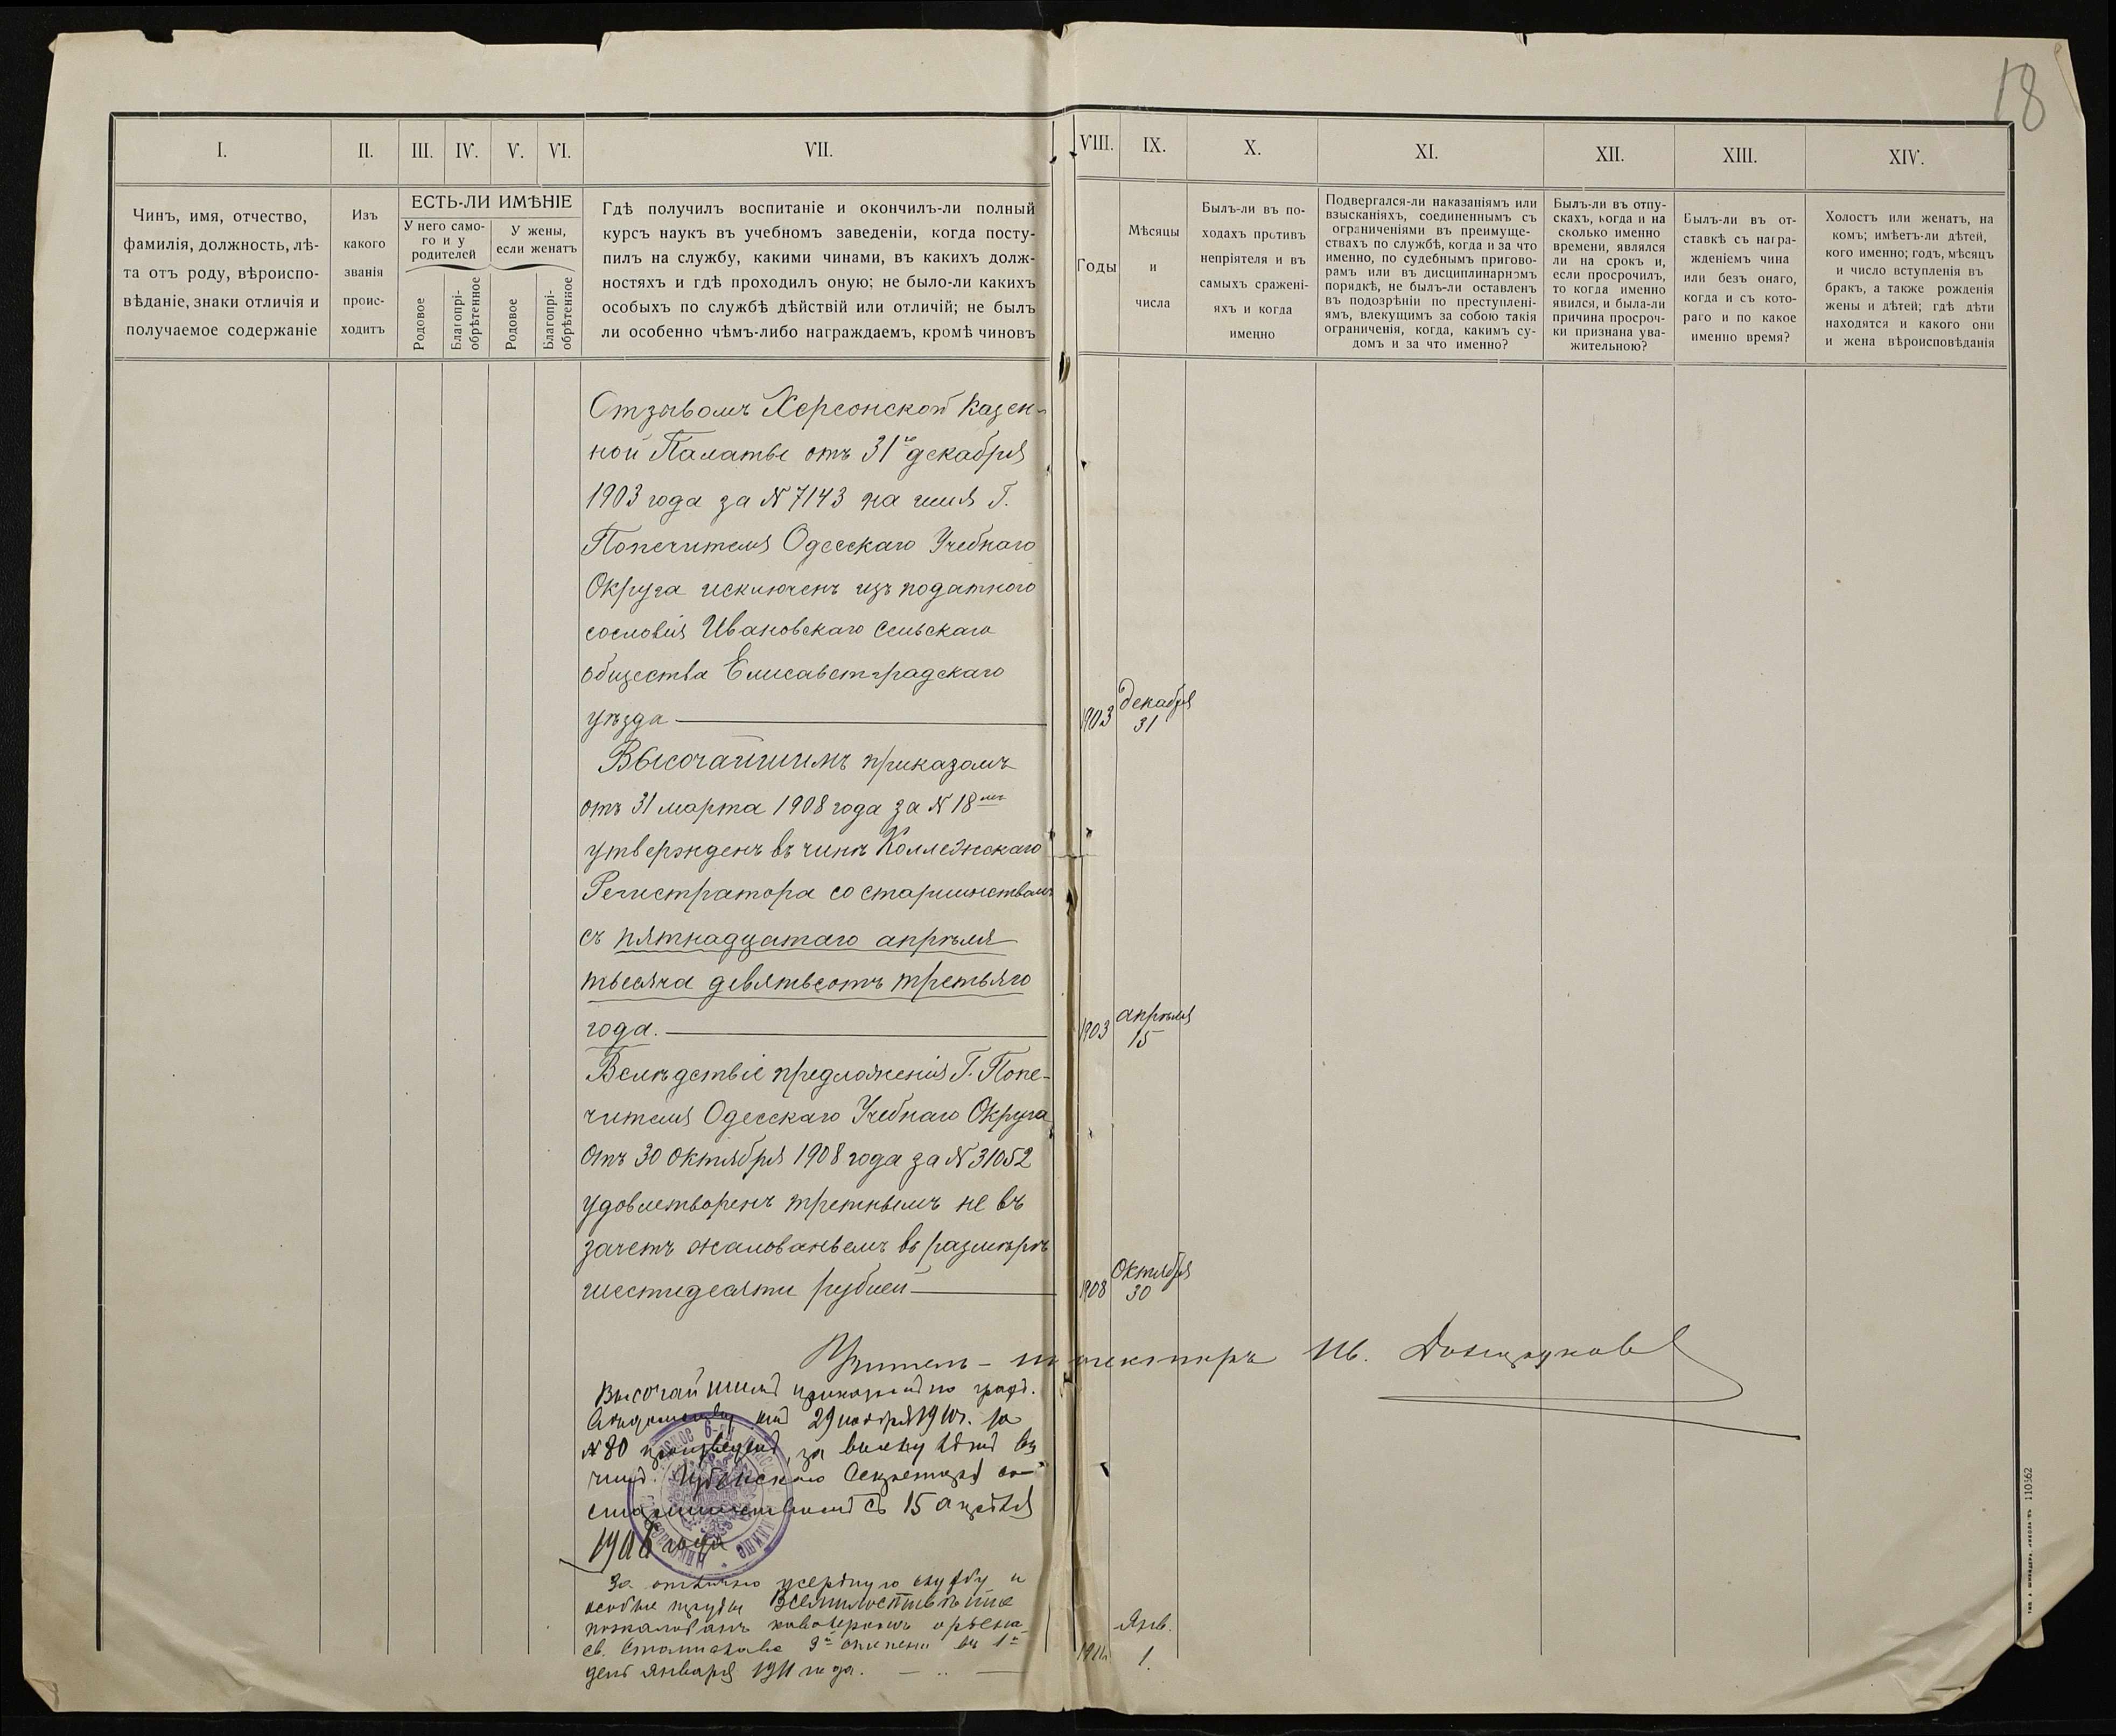 18
I.
II.
III.
IV.
V.
VI.
VII.
VIII.
IX.
X.
XI.
XII.
XIII.
XIV.
Чинъ, имя, отчество,
фамилія, должность, лѣ-
та отъ роду, вѣроиспо-
вѣданіе, знаки отличія и
получаемое содержаніе
Изъ
какого
званія
проис-
ходитъ
ЕСТЬ-ЛИ ИМѢНІЕ
У него само-
го и у
родителей
У жены,
если женатъ
Родовое
Благопрі-
обрѣтенное
Родовое
Благопрі-
обрѣтенное
Гдѣ получилъ воспитаніе и окончилъ-ли полный
курсъ наукъ въ учебномъ заведеніи, когда посту-
пилъ на службу, какими чинами, въ какихъ долж-
ностяхъ и гдѣ проходилъ оную; не было-ли какихъ
особыхъ по службѣ дѣйствій или отличій; не былъ
ли особенно чѣмъ-либо награждаемъ, кромѣ чиновъ
Годы
Мѣсяцы
и
числа
Былъ-ли въ по-
ходахъ противъ
непріятеля и въ
самыхъ сражені-
яхъ и когда
именно
Подвергался-ли наказаніямъ или
взысканіяхъ, соединеннымъ съ
ограниченіями въ преимуще-
ствахъ по службѣ, когда и за что
именно, по судебнымъ пригово-
рамъ или въ дисциплинарномъ
порядкѣ, не былъ-ли оставленъ
въ подозрѣніи по преступлені-
ямъ, влекущимъ за собою такія
ограниченія, когда, какимъ су-
домъ и за что именно?
Былъ-ли въ отпу-
скахъ, когда и на
сколько именно
времени, являлся
ли на срокъ и,
если просрочилъ,
то когда именно
явился, и была-ли
причина просроч-
ки признана ува-
жительною?
Былъ-ли въ от-
ставкѣ съ награ-
жденіемъ чина
или безъ онаго,
когда и съ кото-
раго и по какое
именно время?
Холостъ или женатъ, на
комъ; имѣетъ-ли дѣтей,
кого именно; годъ, мѣсяцъ
и число вступленія въ
бракъ, а также рожденія
жены и дѣтей; гдѣ дѣти
находятся и какого они
и жена вѣроисповѣданія
Отзывомъ Херсонской Казен-
ной Палаты отъ 31го декабря
1903 года за № 7143 на имя Г.
Попечителя Одесскаго Учебнаго
Округа исключенъ изъ податного
сословія Ивановскаго Сельскаго
общества Елисаветградскаго
уѣзда
1903
декабря
31
Высочайшимъ приказомъ
отъ 31 марта 1908 года за № 18мъ
утвержденъ въ чинѣ Коллежскаго
Регистратора со старшинствомъ
съ пятнадцатаго апрѣля
тысяча девятьсотъ третьяго
года.
1903
апрѣля
15
Вслѣдствіе предложенія Г. Попе-
чителя Одесскаго Учебнаго Округа
отъ 30 октября 1908 года за № 31052
удовлетворенъ третнымъ не въ
зачетъ жалованьемъ въ размѣрѣ
шестидесяти рублей
1908
Октября
30
Учитель-инспекторъ Ив.
Высочайшимъ приказомъ по гражд.
вѣдомству отъ 29 ноября 1910 г. за
№ 80 произведенъ за выслугу лѣтъ въ
чинъ Губернскаго Секретаря со
старшинствомъ съ 15 апрѣля
1906 года
За отлично усердную службу и
особые труды Всемилостивѣйше
пожалованъ кавалеромъ ордена
св. Станислава 3й степени въ 1й
день января 1911 года.
1911
Янв.
1.
110362